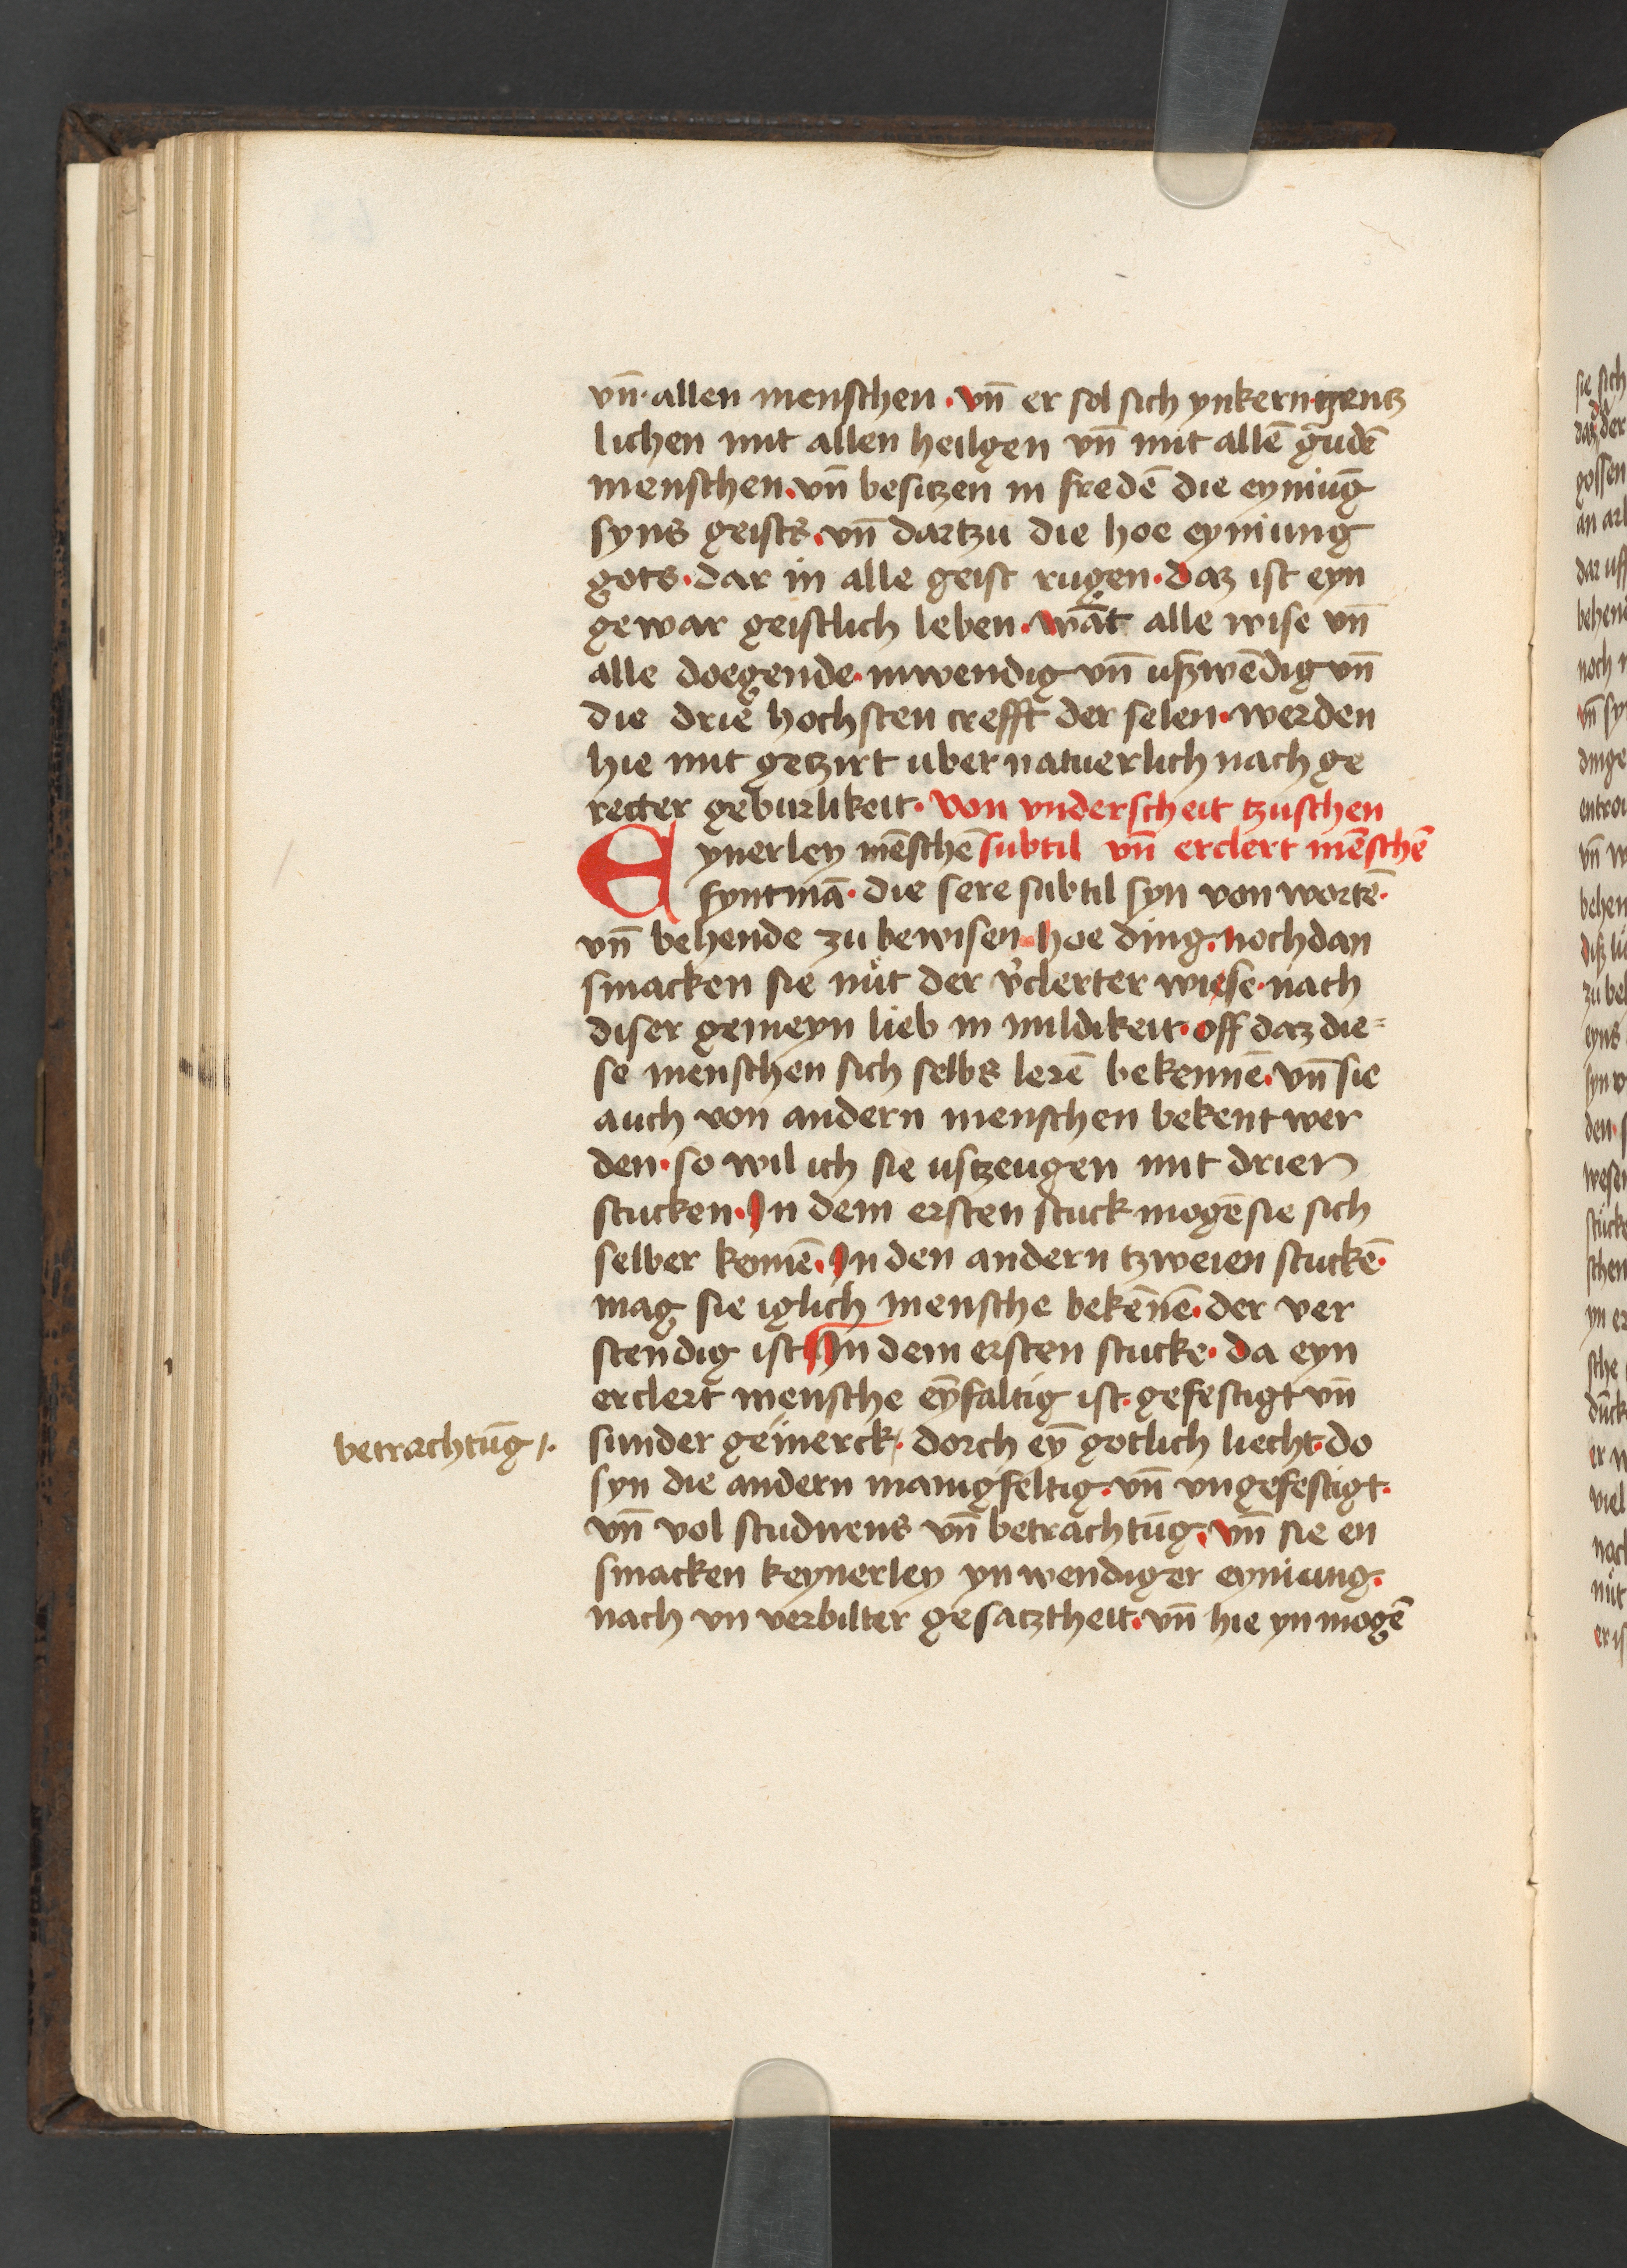 vn̄ · allen menschen · vn̄ er sol sich ynkern gentz
lichen mit allen heilgen vn̄ mit allē gudē
menschen · vn̄ besitzen in fredē die eyniūg
syns geists · vn̄ dartzu die hoe eyniung
gots · dar in alle geist rugen · daz ist eyn
gewar geistlich leben · wāt alle wise vn̄
alle doegende · inwendig vn̄ uszwēdig vn̄
die drie hochsten crefft der selen · werden
hie mit getzirt uber natuerlich nach ge
recter geburlikeit · von vnderscheit tzuschen
Eynerley mēschē subtil vn̄ erclert mēschē
syntmā · die sere subtil syn von wortē ·
vn̄ behende zu bewisen hoe ding · nochdan
smacken sie nüt der v̉clerter wiese · nach
diser gemeyn lieb in mildikeit · off daz die=
se menschen sich selbs lerē bekennē · vn̄ sie
auch von andern menschen bekent wer
den · so wil ich sie ustzeugen mit drien
stucken · In dem ersten stuck mogē sie sich
selber kennē · In den andern tzweien stuckē ·
mag sie iglich mensche bekēnē · der ver
stendig ist In dem ersten stucke · da eyn
erclert mensche eȳfaltig ist · gefestigt vn̄
sunder gemerck · dorch eȳ gotlich liecht · do
syn die andern manigfeltig · vn̄ vngefestigt ·
vn̄ vol studirens vn̄ betrachtūg · vn̄ sie en
smacken keynerley ynwendiger eyniung ·
nach vn verbilter gesatztheit · vn̄ hie yn mogē
betrachtūg /·